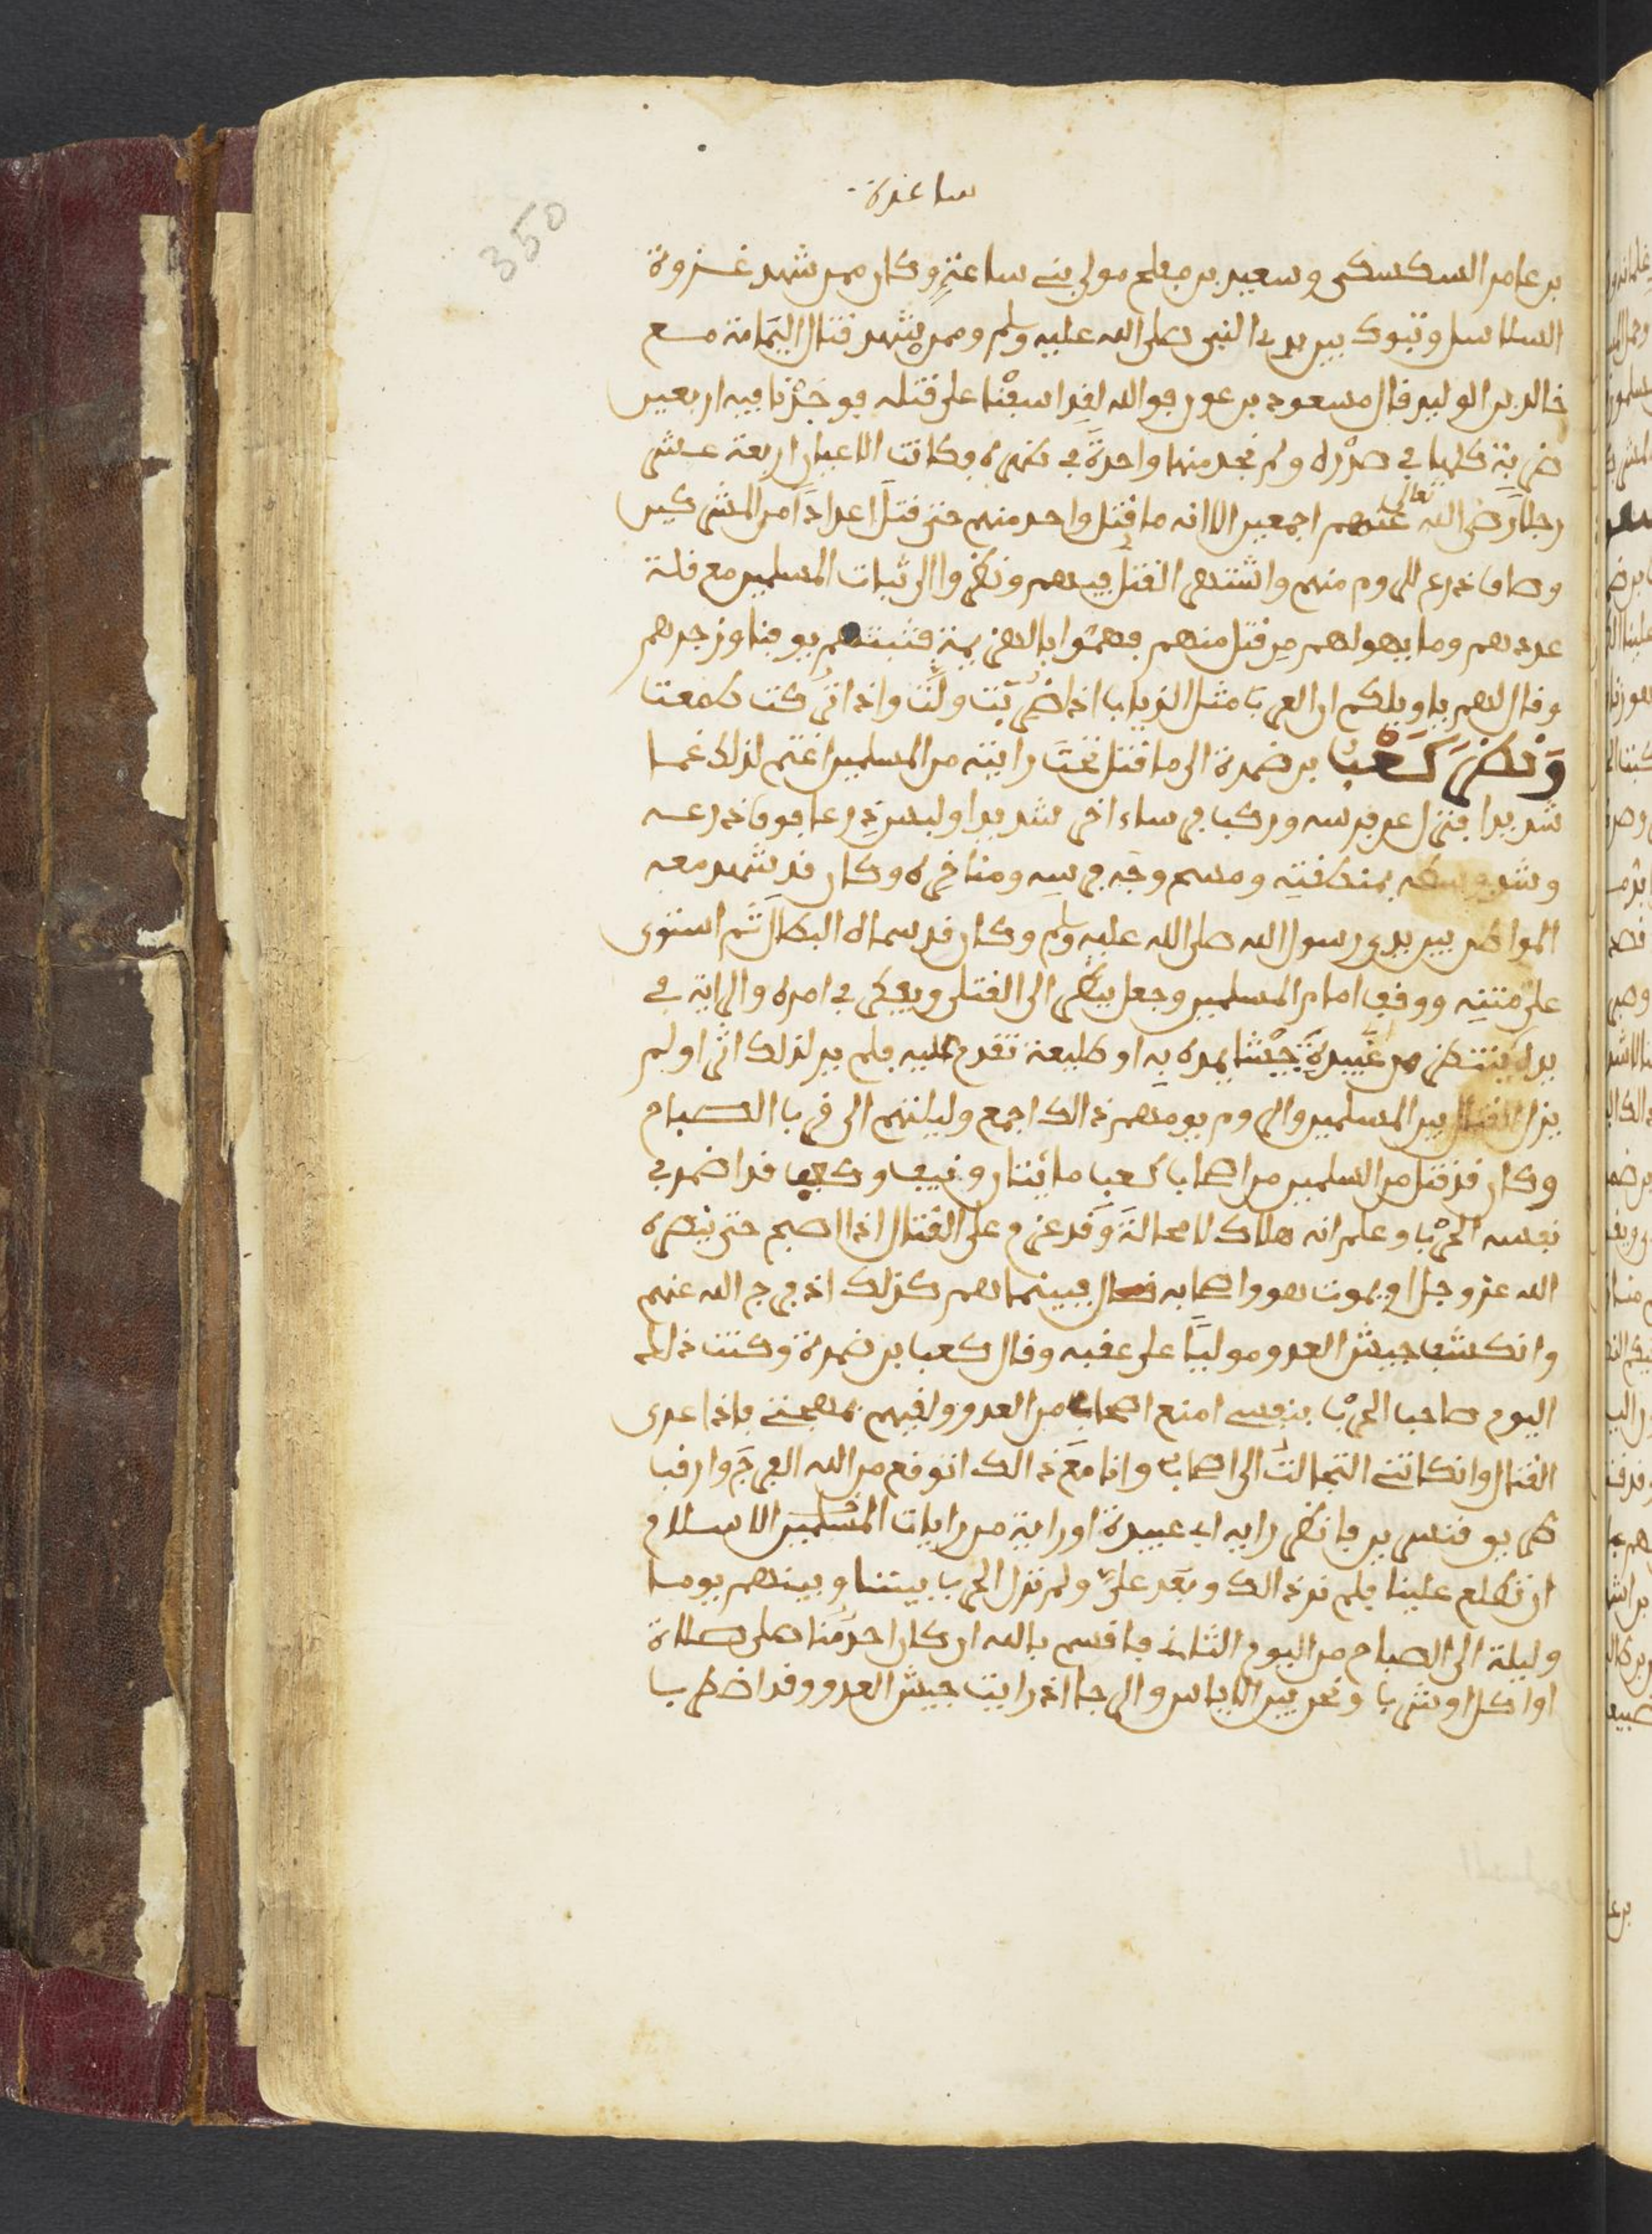 ساعدة
350
بن عامر السكسكي وسعيد بن مفلح مولى بني ساعدة وكان ممن شهد غزوة
السلاسل وتبوك بين يدي النبي صلى الله عليه وسلم وممن شهد قتال اليمامة مع
خالد بن الوليد قال مسعود بن عون فوالله لقد اسفنا على قتله فوجدنا فيه اربعين
ضربة كلها في صدره ولم نجد منها واحدة في ظهره وكانت الاعيان اربعة عشر
رجلا رضي الله تعالى عنهم اجمعين الا انه ما قتل واحد منهم حتى قتل اعدادا من المشركين
وضاق ذرع الروم منهم واشتهى القتل فيهم ونظروا الى ثبات المسلمين مع قلة
عددهم وما يهولهم من قتل منهم فهموا بالهزيمة فثبتهم يوقنا وزجرهم
وقال لهم يا ويلكم ان العرب مثل الذباب اذا ضربت ولت واذا تركت طمعت
ونظر كعب بن ضمرة الى ما قتل تحت رايته من المسلمين اغتم لذلك غما
شديدا فنزل عن فرسه وركب فرسا اخر شديدا ولبس درعا فوق درعه
وشد وسطه بمنطقته ومسح وجه فرسه ومناخره وكان قد شهد معه
المواطن بين يدي رسول الله صلى الله عليه وسلم وكان قد سماه البطال ثم استوى
على متنه ووقف امام المسلمين وجعل ينظر الى القتلى ويفكر في امره والراية في
يده ينتظر من عبيدة جيشا يمده به او طليعة تقدم عليه فلم ير لذلك اثرا ولم
يزل القتال بين المسلمين والروم يومهم ذالك اجمع وليلتهم الى قرب الصباح
وكان قد قتل من المسلمين من اصحاب كعب مائتان ونيف وكعب قد اضمر في
نفسه الحرب وعلم انه هلاك لا محالة وقد عزم على القتال اذا اصبح حتى ينصره
الله عز وجل او يموت هو واصحابه قال فبينما هم كذلك اذ فرج الله عنهم
وانكشف جيش العدو موليا على عقبه وقال كعب بن ضمرة وكنت ذلك
اليوم صاحب الحرب بنفسي امنع اصحابي من العدو ولقيهم بمهجتي فاذا عدى
القتال وانكاتني التجالت الى اصحابي وانا مع ذالك اتوقع من الله الفرج وارقب
طريق قنسرين فانظر رايه ابي عبيدة او راية من رايات المسلمين الاسلام
ان تطلع علينا فلم نر ذالك وبعد علي ولم تزل الحرب بيننا وبينهم يوما
وليلة الى الصباح من اليوم الثاني فاقسم بالله ان كان احد منا صلى صلاة
او اكل او شرب ونحن بين الاياس والرجا اذ رايت جيش العدو وقد اضطرب